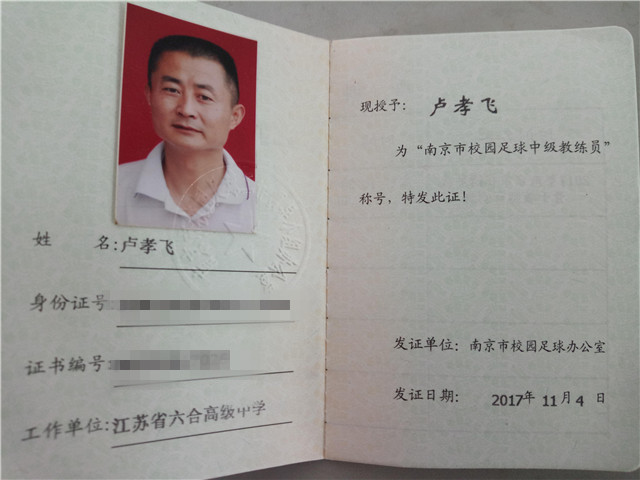 姓 名:卢孝飞
身份证号
证书编号:
工作单位:江苏省六合高级中学
现授予: 卢孝飞
为“南京市校园足球中级教练员”
称号,特发此证!
发证单位: 南京市校园足球办公室
发证日期: 2017年 11月 4日